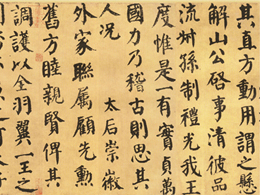 其直方動用謂之懸
解山公啓事清彼品
流叔孫制禮光我王
度惟是一有實貞萬
國力乃稽古則思其
人況 太后崇徽
外家聯屬顧先勳
舊方睦親賢俾其
調護以全羽翼一王之